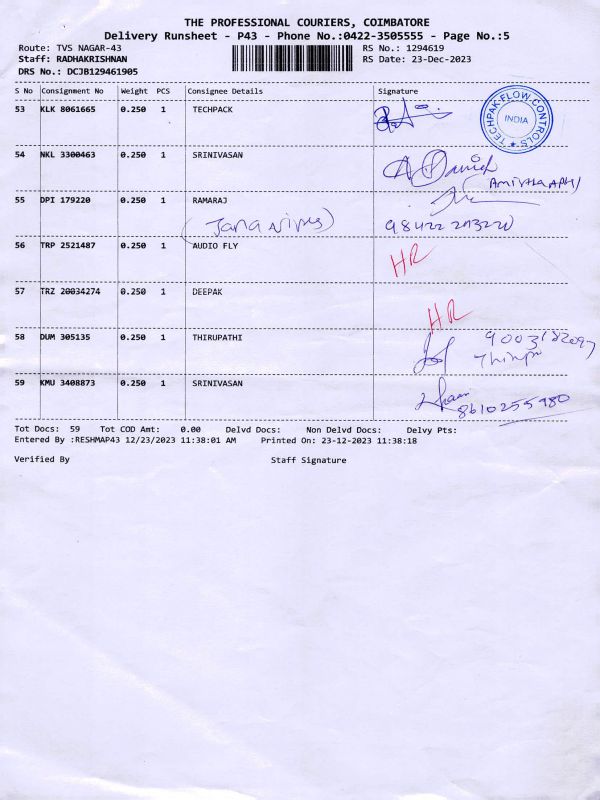 THE PROFESSIONAL COURIERS, COIMBATORE
Delivery Runsheet - P43 - Phone No.:0422-3505555 - Page No.:5
Route: TVS NAGAR-43 RS No.: 1294619
Staff: RADHAKRISHNAN RS Date: 23-Dec-2023
DRS No.: DCJB129461905
S No Consignment No Weight PCS Consignee Details Signature
53 KLK 8061665 0.250 1 TECHPACK
TECHPAK FLOW CONTROLS
INDIA
54 NKL 3300463 0.250 1 SRINIVASAN
Daniel
55 DPI 179220 0.250 1 RAMARAJ
56 TRP 2521487 0.250 1 AUDIO FLY
HR
57 TRZ 20034274 0.250 1 DEEPAK
HR
58 DUM 305135 0.250 1 THIRUPATHI
59 KMU 3408873 0.250 1 SRINIVASAN
8610255980
Tot Docs: 59 Tot COD Amt: 0.00 Delvd Docs: Non Delvd Docs: Delvy Pts:
Entered By :RESHMAP43 12/23/2023 11:38:01 AM Printed On: 23-12-2023 11:38:18
Verified By Staff Signature